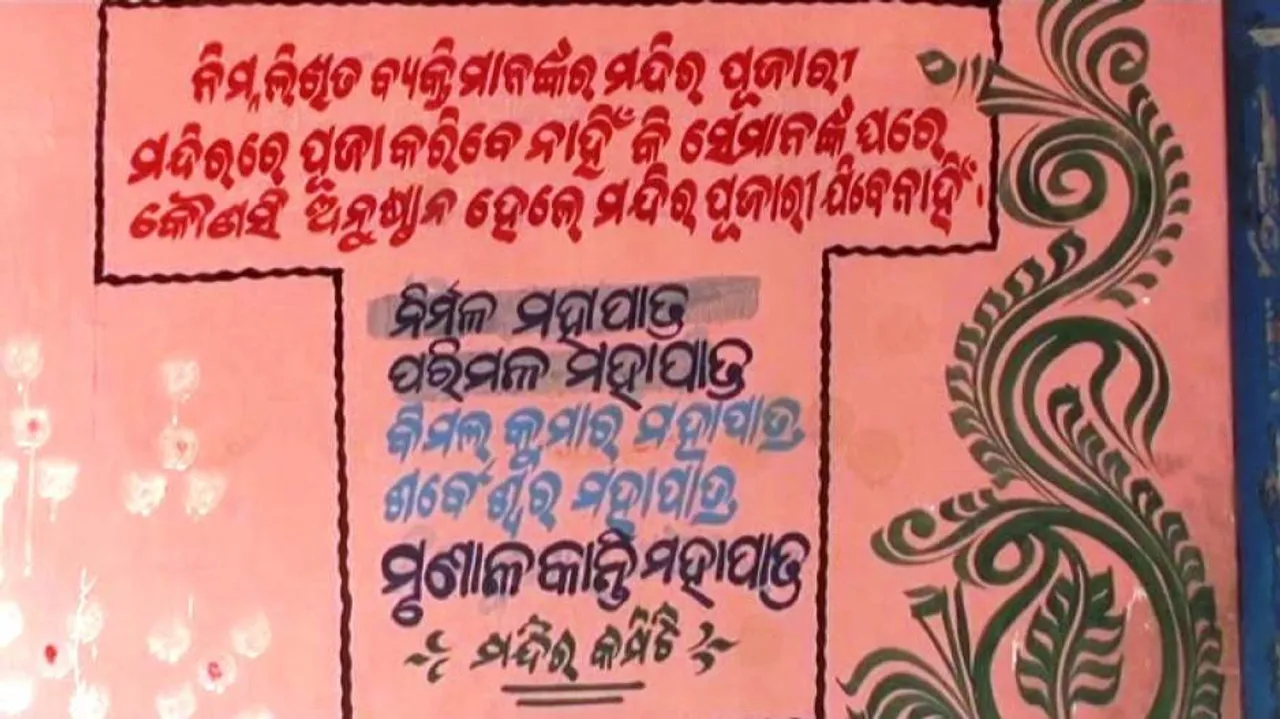 ନିମ୍ନଲିଖିତ ବ୍ୟକ୍ତିମାନଙ୍କର ମନ୍ଦିର ପୂଜାରୀ
ମନ୍ଦିରରେ ପୂଜା କରିବେ ନାହିଁ କି ସେମାନଙ୍କ ଘରେ
କୌଣସି ଅନୁଷ୍ଠାନ ହେଲେ ମନ୍ଦିର ପୂଜାରୀ ଯିବେ ନାହିଁ ।
ନିର୍ମଳ ମହାପାତ୍ର
ପରିମଳ ମହାପାତ୍ର
ବିମଲ୍ କୁମାର୍ ମହାପାତ୍ର
ଶର୍ବେଶ୍ୱର୍ ମହାପାତ୍ର
ମୃଣାଳକାନ୍ତି ମହାପାତ୍ର
ମନ୍ଦିର କମିଟି